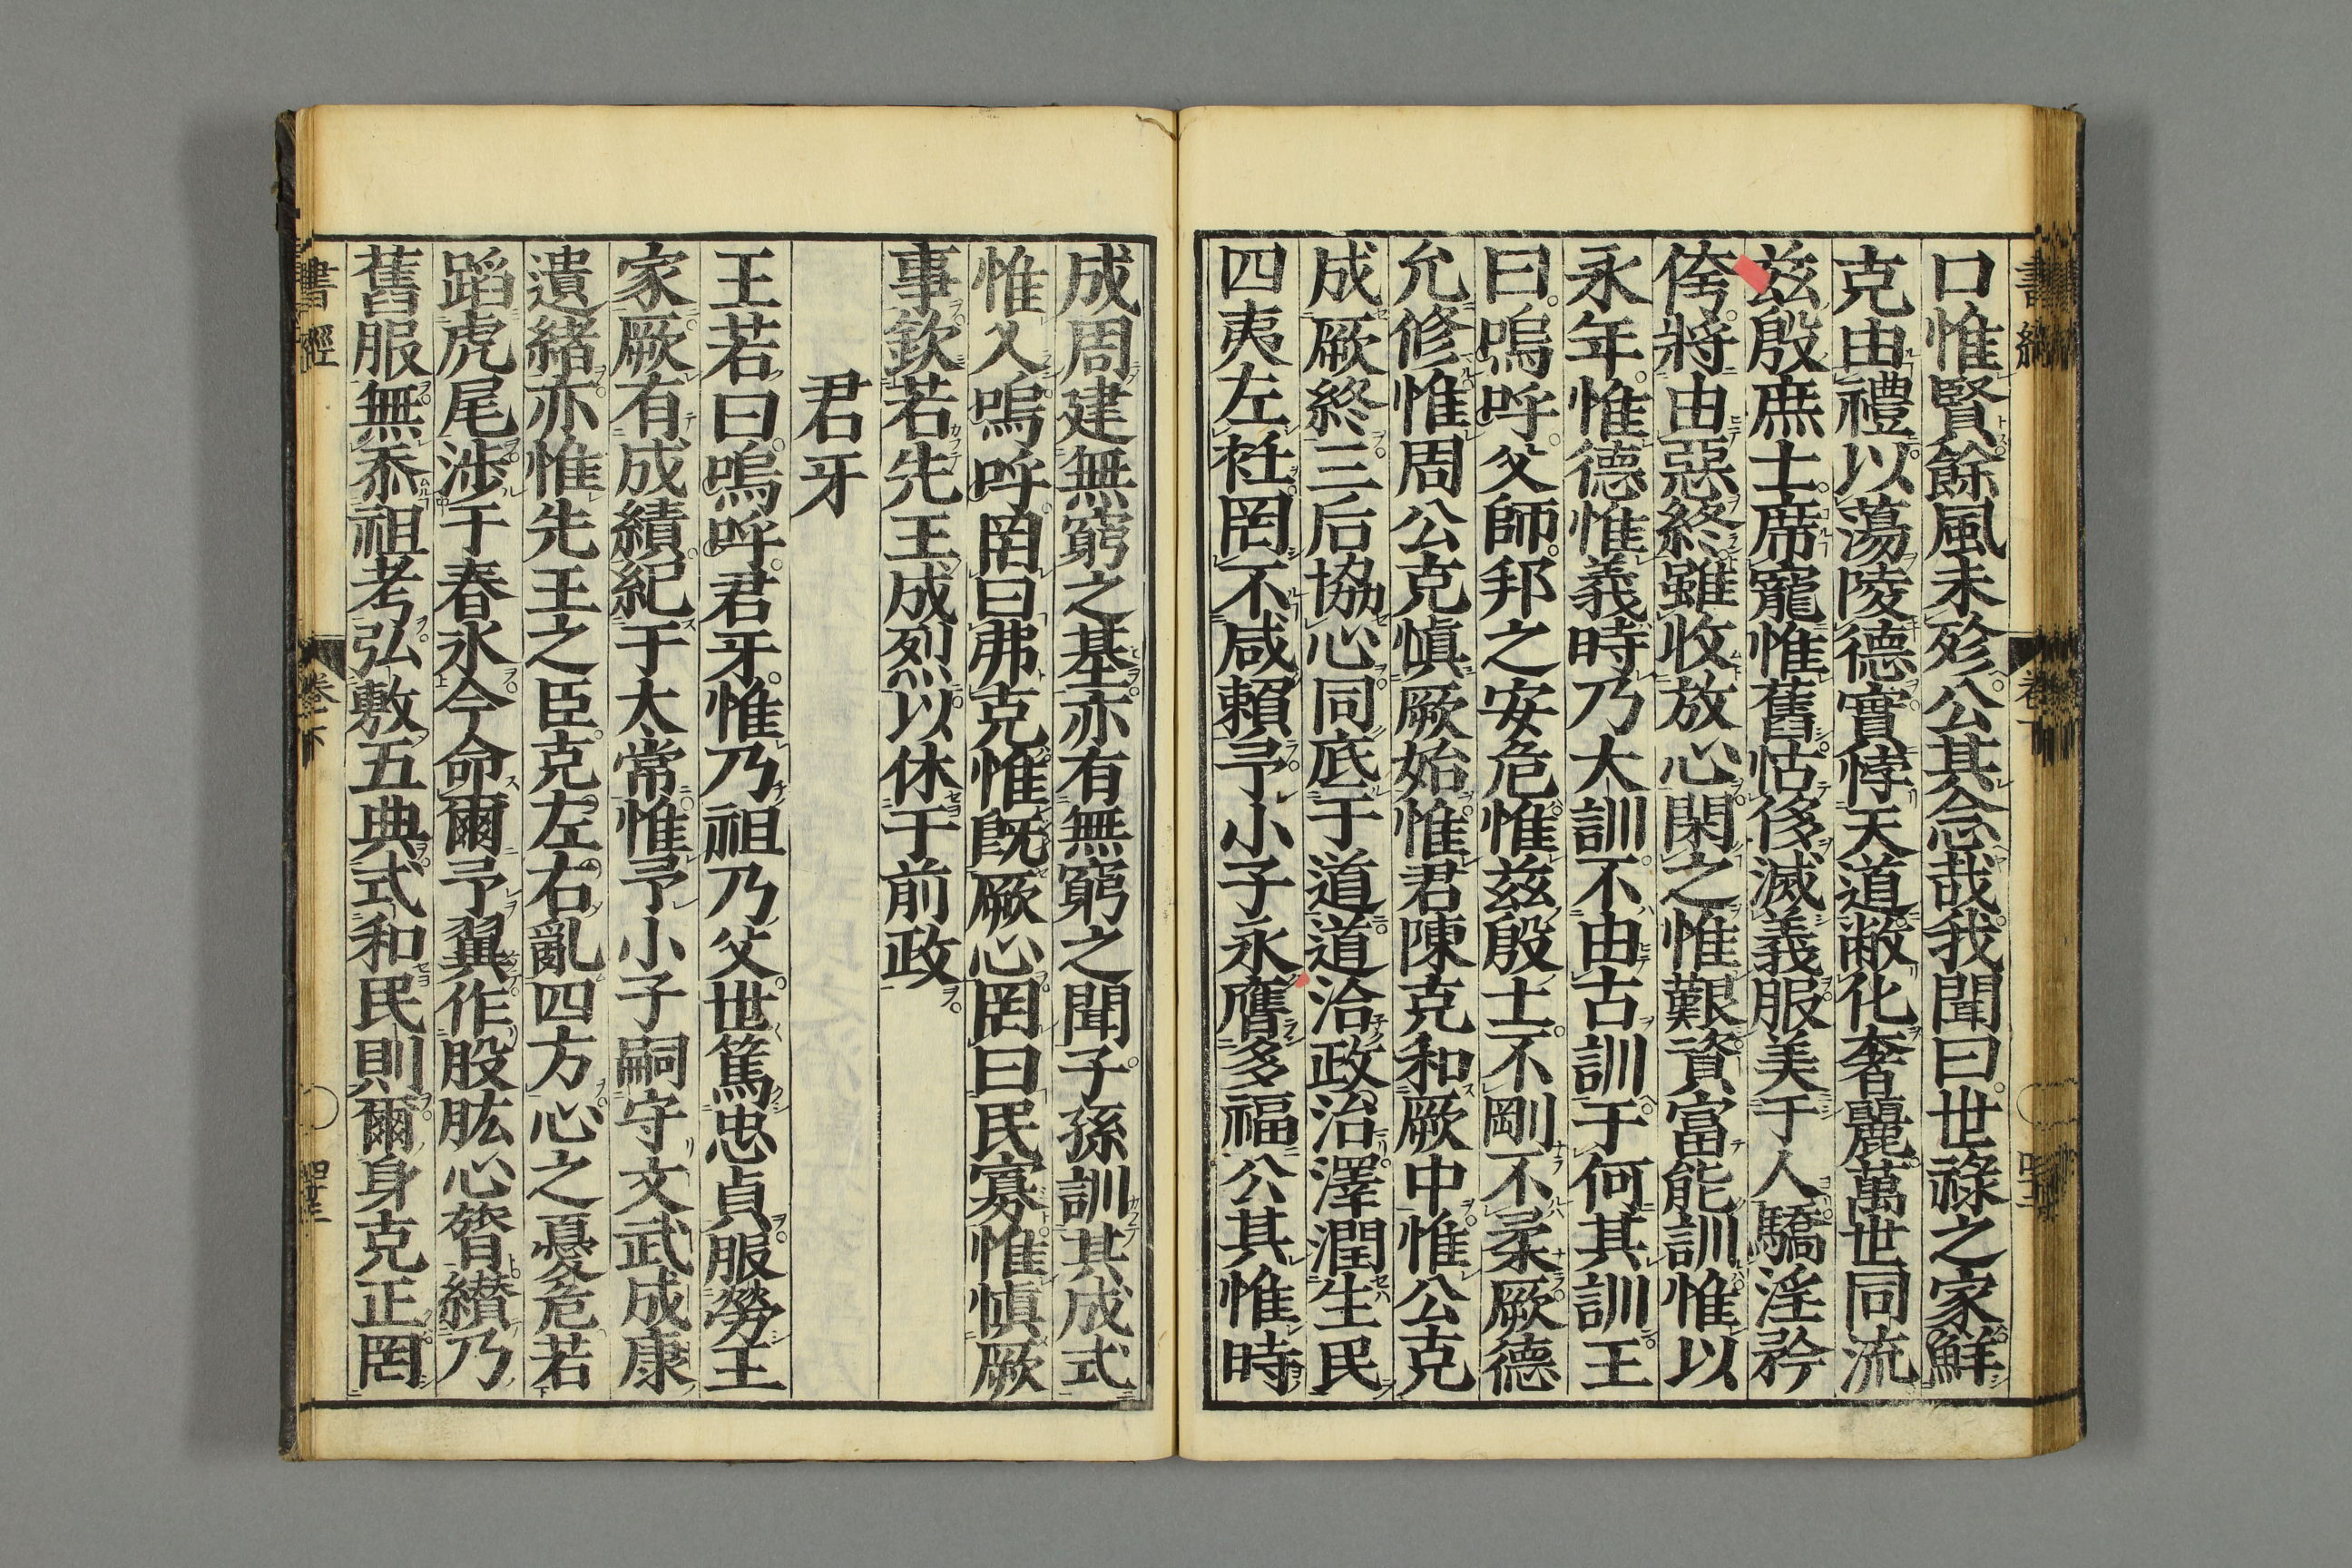 口惟賢餘風未殄公其念哉我聞曰世祿之家鮮
克由禮以蕩陵德實悖天道敝化奢麗萬世同流
茲殷庶士席寵惟舊怙侈滅義服美于人驕淫矜
侉將由惡終雖收放心閑之惟艱資富能訓惟以
永年惟德惟義時乃大訓不由古訓于何其訓王
曰嗚呼父師邦之安危惟茲殷士不剛不柔厥德
允修惟周公克愼厥始惟君陳克和厥中惟公克
成厥終三后協心同底于道道洽政治澤潤生民
四夷左衽罔不咸賴予小子永膺多福公其惟時
成周建無窮之基亦有無窮之聞子孫訓其成式
惟乂嗚呼罔曰弗克惟旣厥心罔曰民寡惟愼厥
事欽若先王成烈以休于前政
君牙
王若曰嗚呼君牙惟乃祖乃父世篤忠貞服勞王
家厥有成績紀于太常惟予小子嗣守文武成康
遺緒亦惟先王之臣克左右亂四方心之憂危若
蹈虎尾涉于春氷今命爾予翼作股肱心膂纘乃
舊服無忝祖考弘敷五典式和民則爾身克正罔
書經
卷下
四十三